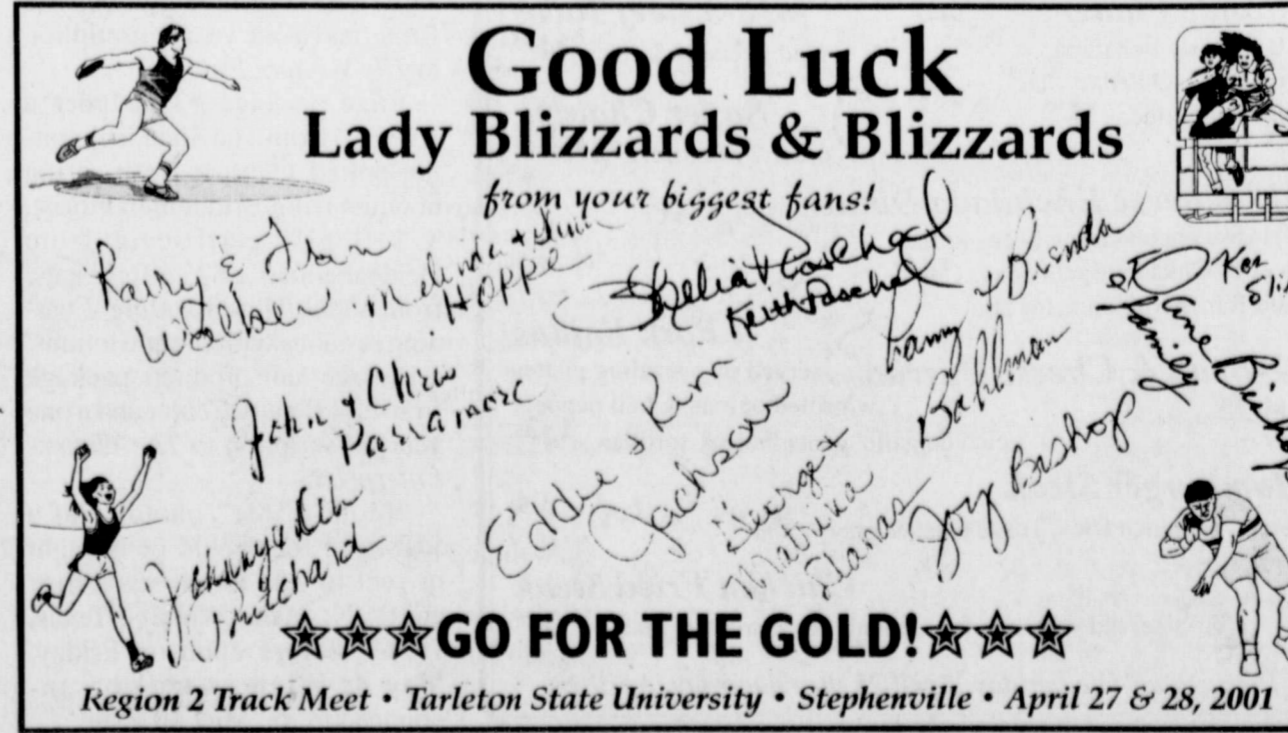 Good Luck
Lady Blizzards & Blizzards
from your biggest fans!
Rainy &
Walker
Melinda +
Hoppe
Shelia + Paschal
Keith Paschal
Lanny + Brenda
Bahlman
Ken
& Jane Bishop
Family
John & Chris
Passamore
Eddie & Lin
Jackson
George
Matilda
Planas
Jory Bishop
Johnny & Lil
Mitcham
GO FOR THE GOLD!
Region 2 Track Meet • Tarleton State University • Stephenville • April 27 & 28, 2001